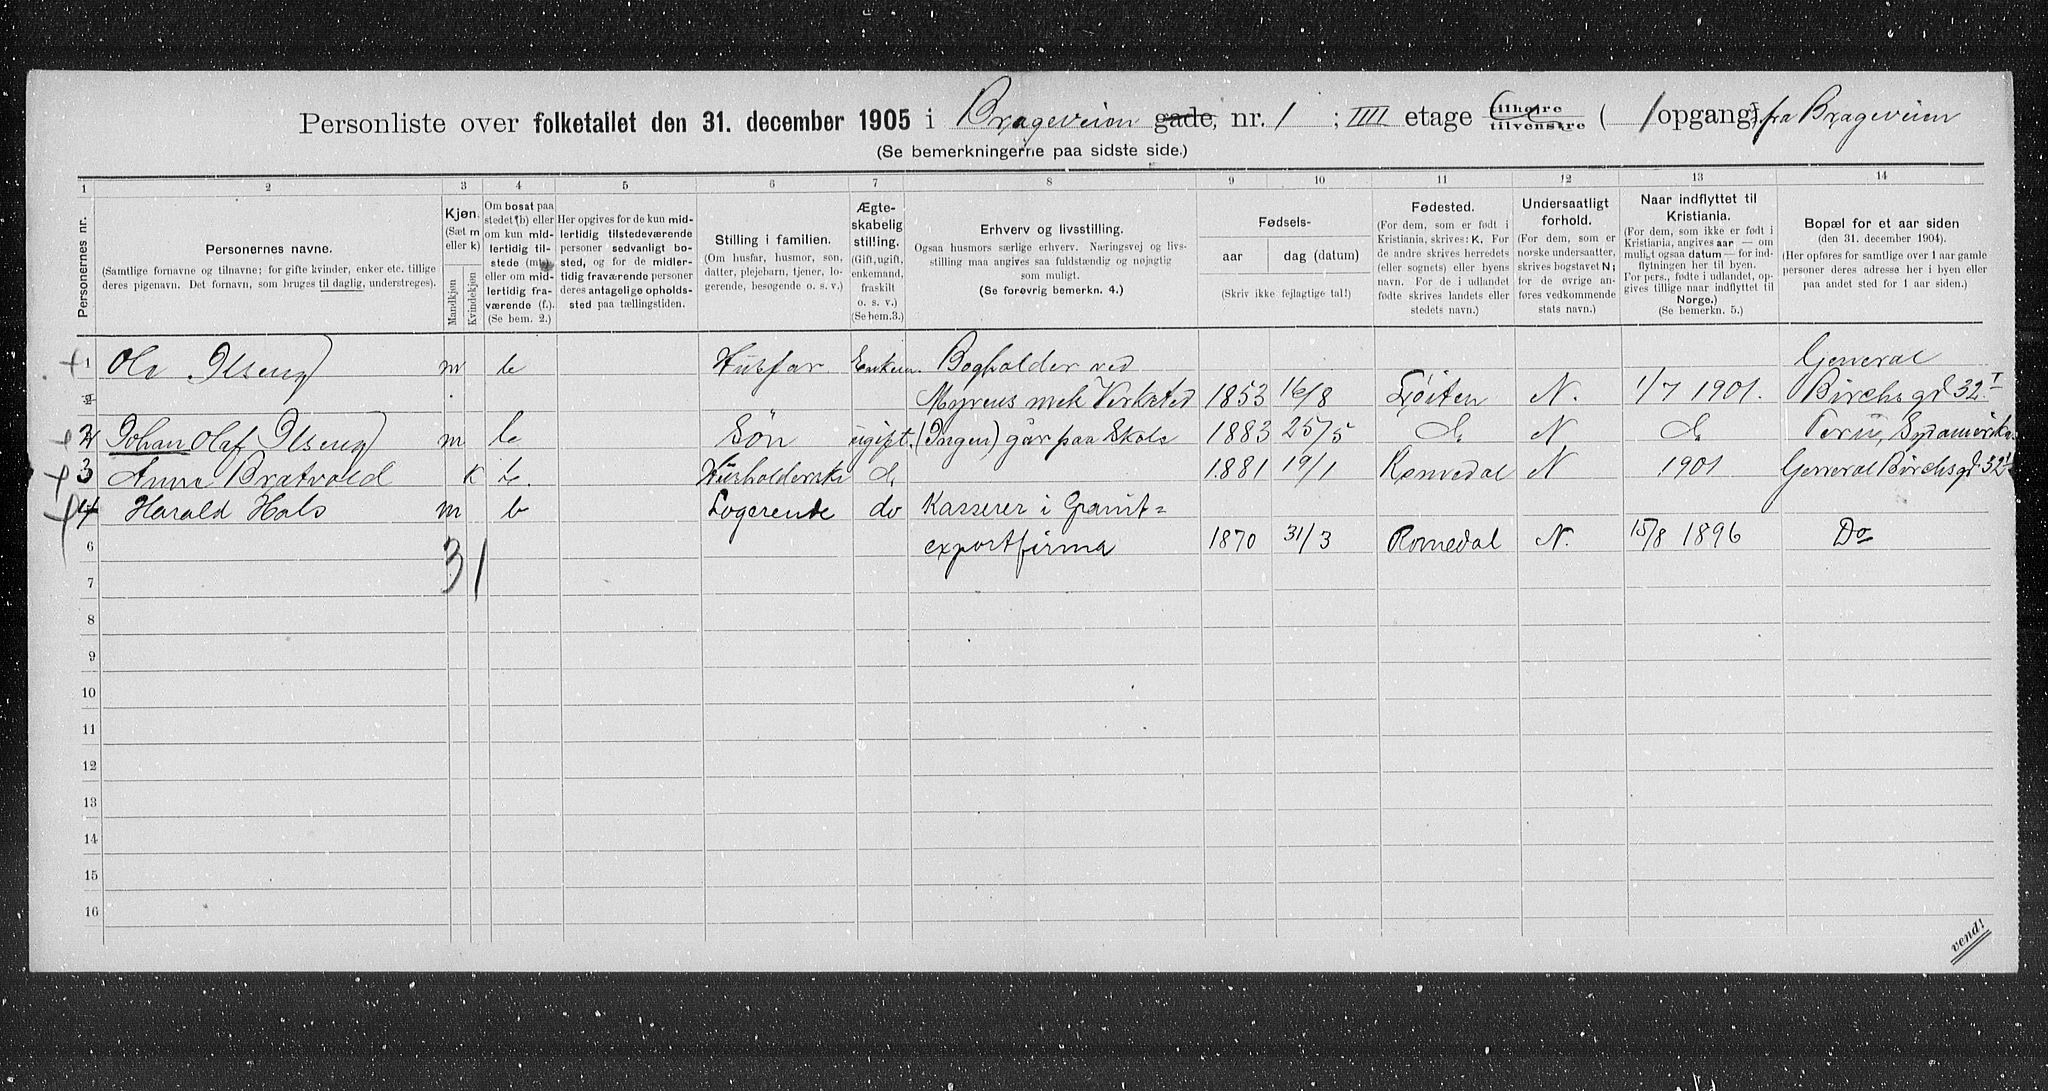 Personliste over folketallet den 31. december 1905 i Brageveien gade, nr. 1 ; IIII etage tilhøire tilvenstre ( 1 opgang) fra Brageveien
(Se bemerkningerne paa sidste side.)
1 2 3 4 5 6 7 8 9 10 11 12 13 14
Personernes nr.
Personernes navne.
(Samtlige fornavne og tilnavne; for gifte kvinder, enker etc. tillige
deres pigenavn. Det fornavn, som bruges til daglig, understreges).
Kjøn.
(Sæt m
eller k)
Mandkjøn
Kvindekjøn
Om bosat paa
stedet (b) eller
om kun mid-
lertidig til-
stede (mt)
eller om mid-
lertidig fra-
værende (f.)
(Se bem. 2.)
Her opgives for de kun mid-
lertidig tilstedeværende
personer sedvanligt bo-
sted, og for de midler-
tidig fraværende personer
deres antagelige opholds-
sted paa tællingstiden.
Stilling i familien.
(Om husfar, husmor, søn,
datter, plejebarn, tjener, lo-
gerende, besøgende o. s. v.)
Ægte-
skabelig
stilling.
(Gift, ugift,
enkemand,
fraskilt
o. s. v.)
(Se bem.3.)
Erhverv og livsstilling.
Ogsaa husmors særlige erhverv. Næringsvej og livs-
stilling maa angives saa fuldstændig og nøjagtig
som muligt.
(Se forøvrig bemerkn. 4.)
Fødsels-
aar dag (datum)
(Skriv ikke fejlagtige tal!)
Fødested.
(For dem, som er født i
Kristiania, skrives: K. For
de andre skrives herredets
(eller sognets) eller byens
navn. For de i udlandet
fødte skrives landets eller
stedets navn.)
Undersaatligt
forhold.
(For dem, som er
norske undersaatter,
skrives bogstavet N;
for de øvrige an-
føres vedkommende
stats navn.)
Naar indflyttet til
Kristiania.
(For dem, som ikke er født i
Kristiania, angives aar — om
muligt ogsaa datum — for ind-
flytningen her til byen.
For pers., fødte i udlandet, op-
gives tillige naar indflyttet til
Norge.)
(Se bemerkn. 5.)
Bopæl for et aar siden
(den 31. december 1904).
(Her opføres for samtlige over 1 aar gamle
personer deres adresse her i byen eller
paa andet sted for 1 aar siden.)
1 Ole Ilseng m b Husfar Enkem. Bogholder ved General
2 Myrens mek Verksted 1853 16/8 Løiten N. 1/7 1901. Birchs gd 32 I
2 Johan Olaf Ilseng m b Søn ugift. (Ingen) går paa Skole 1883 25/5 d. N d. Peru, Sydamerika
3 Anna Bratvold k b. Husholderske d. 1881 19/1 Romedal N 1901 General Birchsgd 32 I
4 Harald Hals m b Logerende do Kasserer i Granit=
6 exportfirma 1870 31/3 Romedal N. 15/8 1896 Do
3 1
7
8
9
10
11
12
13
14
15
16
vend!